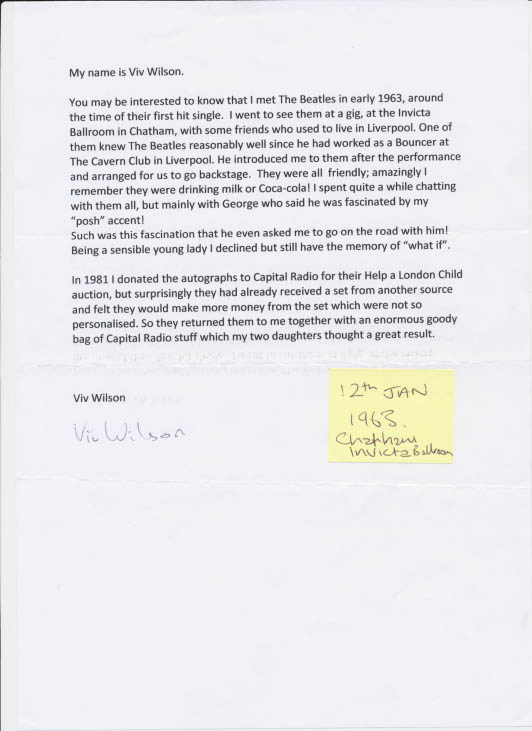 My name is Viv Wilson.
You may be interested to know that I met The Beatles in early 1963, around
the time of their first hit single.  I went to see them at a gig, at the Invicta
Ballroom in Chatham, with some friends who used to live in Liverpool. One of
them knew The Beatles reasonably well since he had worked as a Bouncer at
The Cavern Club in Liverpool. He introduced me to them after the performance
and arranged for us to go backstage.  They were all  friendly; amazingly I
remember they were drinking milk or Coca-cola! I spent quite a while chatting
with them all, but mainly with George who said he was fascinated by my
“posh” accent!
Such was this fascination that he even asked me to go on the road with him!
Being a sensible young lady I declined but still have the memory of “what if”.
In 1981 I donated the autographs to Capital Radio for their Help a London Child
auction, but surprisingly they had already received a set from another source
and felt they would make more money from the set which were not so
personalised. So they returned them to me together with an enormous goody
bag of Capital Radio stuff which my two daughters thought a great result.
Viv Wilson
Viv Wilson
12th JAN
1963.
Chatham
Invicta Ballroom